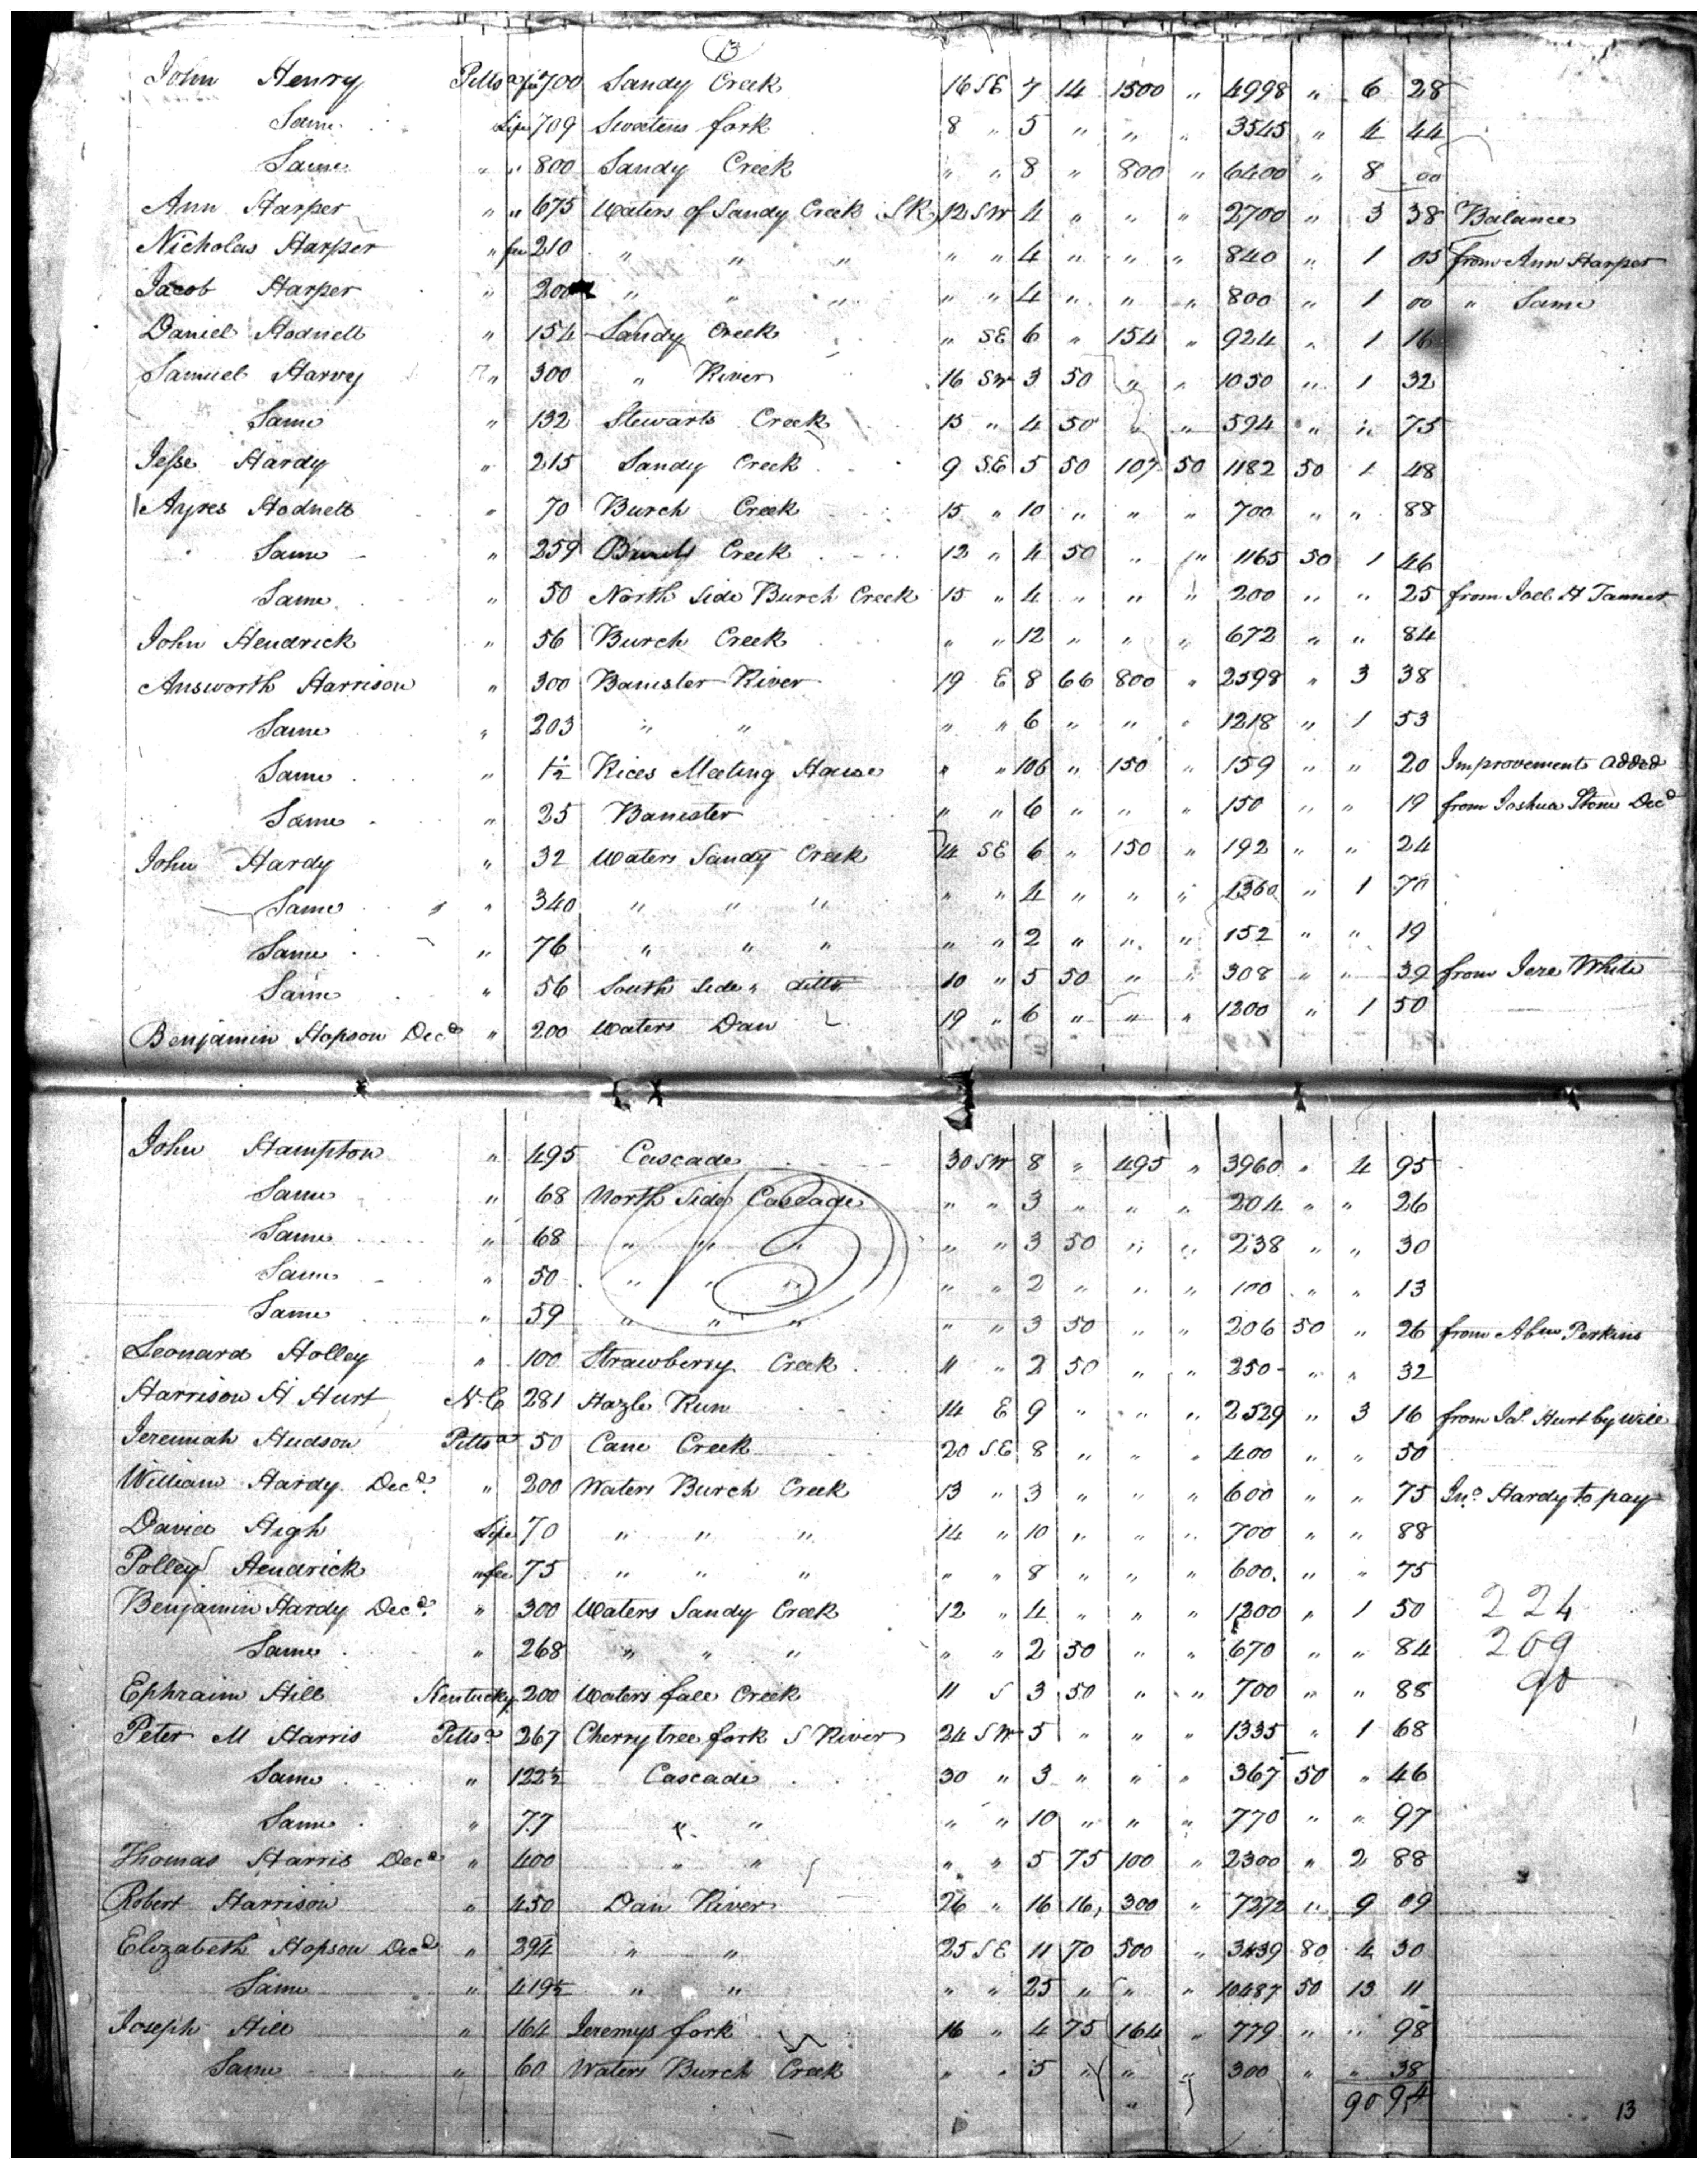 13
John Henry Pittsa fee 700 Sandy Creek 16 SE 7 14 1500 " 4998 " 6 28
Same Life 709 Sweetens fork 8 " 5 " " " 3545 " 4 44
Same " " 800 Sandy Creek " " 8 " 800 " 6400 " 8 00
Ann Harper " " 675 Waters of Sandy Creek S R 12 SW 4 " " " 2700 " 3 38 Balance
Nicholas Harper " fee 210 " " " " " 4 " " " 840 " 1 05 from Ann Harper
Jacob Harper " 200 " " " " " 4 " " " 800 " 1 00 " Same
Daniel Hodnett " 154 Sandy Creek " SE 6 " 154 " 924 " 1 16
Samuel Harvy " 300 " River 16 SW 3 50 " " 1050 " 1 32
Same " 132 Stewarts Creek 15 " 4 50 " " 594 " " 75
Jesse Hardy " 215 Sandy Creek 9 SE 5 50 107 50 1182 50 1 48
Ayres Hodnett " 70 Burch Creek 15 " 10 " " " 700 " " 88
Same " 259 Creek 12 " 4 50 " " 1165 50 1 46
Same " 50 North Side Burch Creek 15 " 4 " " " 200 " " 25 from Joel H Tanner
John Hendrick " 56 Burch Creek " " 12 " " " 672 " " 84
Answorth Harrison " 300 Banister River 19 E 8 66 800 " 2598 " 3 38
Same " 203 " " " " 6 " " " 1218 " 1 53
Same " 1½ Rices Meeting House " " 106 " 150 " 159 " " 20 Improvements added
Same " 25 Banister " " 6 " " " 150 " " 19 from Joshua Stone Decd
John Hardy " 32 Waters Sandy Creek 14 SE 6 " 150 " 192 " " 24
Same " 340 " " " " " 4 " " " 1360 " 1 70
Same " 76 " " " " " 2 " " " 152 " " 19
Same " 56 South Side " ditto 10 " 5 50 " " 308 " " 39 from Jere White
Benjamin Hopson Decd " 200 Waters Dan 19 " 6 " " " 1200 " 1 50
John Hampton " 495 Cascade 30 SW 8 " 495 " 3960 " 4 95
Same " 68 North Side Cascade " " 3 " " " 204 " " 26
Same " 68 " " " " " 3 50 " " 238 " " 30
Same " 50 " " " " " 2 " " " 100 " " 13
Same " 59 " " " " " 3 50 " " 206 50 " 26 from Abm Perkins
Leonard Holley " 100 Strawberry Creek 11 " 2 50 " " 250 " " 32
Harrison H Hurt N. C 281 Hazle Run 14 E 9 " " " 2529 " 3 16 from Jas. Hurt by Will
Jeremiah Hudson Pittsa 50 Cane Creek 20 SE 8 " " " 400 " " 50
William Hardy Decd. " 200 Waters Burch Creek 13 " 3 " " " 600 " " 75 Jno. Hardy to pay
David High Life 70 " " " 14 " 10 " " " 700 " " 88
Polley Hendrick " fee 75 " " " " " 8 " " " 600 " " 75
Benjamin Hardy Decd. " 300 Waters Sandy Creek 12 " 4 " " " 1200 " 1 50 224
Same " 268 " " " " " 2 50 " " 670 " " 84 209
Ephraim Hill Kentucky 200 Waters fall Creek 11 S 3 50 " " 700 " " 88 90
Peter M Harris Pittsa 267 Cherrytree fork S River 24 SW 5 " " " 1335 " 1 68
Same " 122½ Cascade 30 " 3 " " " 367 50 " 46
Same " 77 " " " " 10 " " " 770 " " 97
Thomas Harris Decd " 400 " " " " 5 75 100 " 2300 " 2 88
Robert Harrison " 450 Dan River 26 " 16 16 300 " 7272 " 9 09
Elizabeth Hopson Decd " 294 " " 25 SE 11 70 500 " 3439 80 4 30
Same " 419½ " " " " 25 " " " 10487 50 13 11
Joseph Hill " 164 Jeremys fork 16 " 4 75 164 " 779 " " 98
Same " 60 Waters Burch Creek " " 5 " " " 300 " " 38
90 94
13